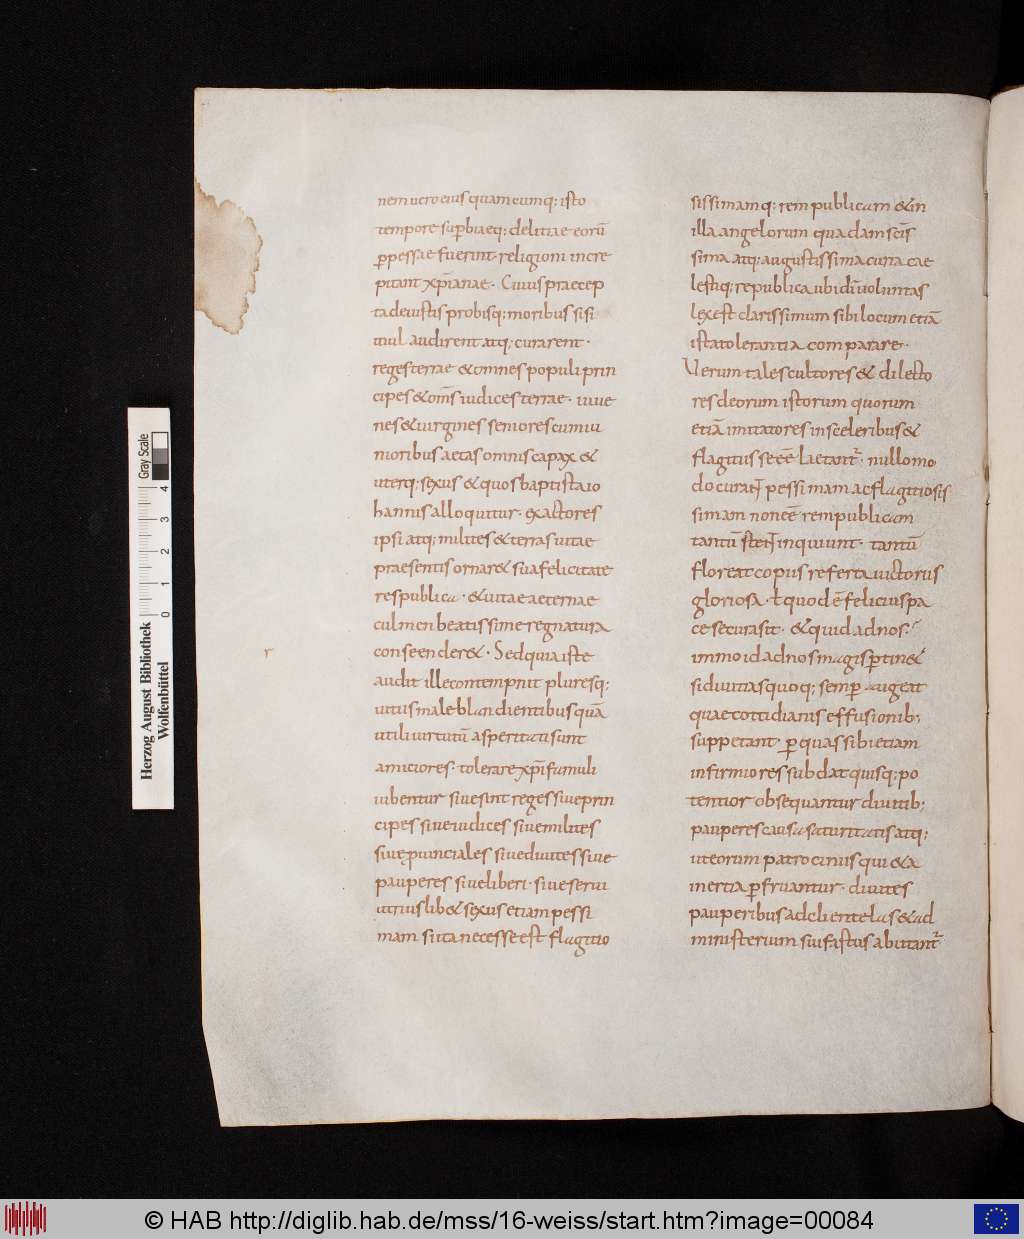 nem uero eius quamcumq; isto
tempore sup̄biaeq; delitiae eorū
ꝑpessae fuerint· religioni incre
pitant xp̄ianae· Cuius praecep
ta de iustis probisq; moribus si si
mul audirent atq; curarent·
reges terrae & omnes populi prin
cipes & om̄s iudices terrae· iuue
nes & uirgines seniores cum iu
nioribus aetas omnis capax &
uterq; sexus & quos baptista io
hannis alloquitur· exactores
ipsi atq; milites & terras uitae
praesentis ornar& sua felicitate
respublica· & uitae aeternae
culmen beatissime regnatura
conscender&· Sed quia iste
audit ille contempnit pluresq;
uitiis male blandientibus quā
utili uirtutū asperitati sunt
amiciores· tolerare xp̄i famuli
iubentur siue sint reges siue prin
cipes siue iudices siue milites
siue ꝓuinciales siue diuites siue
pauperes siue liberi· siue serui
utriuslib& sexus etiam pessi
mam si ita necesse est flagitio
sissimamq; rem publicam & in
illa angelorum quadam sc̄is
sima atq; augustissima curia cae
lestiq; republica ubi dī uoluntas
lex est clarissimum sibi locum etiā
ista tolerantia comparare·
Uerum tales cultores & dilecto
res deorum istorum quorum
etiā imitatores in sceleribus &
flagitiis se ēē laetant᷑· nullo mo
do curant pessimam ac flagitiosis
simam non ēē rempublicam
tantū stet inquiunt· tantū
floreat copiis referta uictoriis
gloriosa· ł quod ē felicius pa
ce secura sit· & quid ad nos?
immo id ad nos magis ꝑtin&
si diuitias quoq; semꝑ augeat
quae cottidianis effusionib;
suppetant· ꝑ quas sibi etiam
infirmiores subdat quisq; po
tentior obsequantur diuitib;
pauperes causa saturitatis atq;
ut eorum patrociniis qui&a
inertia ꝑfruantur· diuites
pauperibus ad clientelas & ad
ministerium sui fastus abutant᷑
Herzog August Bibliothek
Wolfenbüttel
0 1 2 3 4
Gray Scale
© HAB http://diglib.hab.de/mss/16-weiss/start.htm?image=00084